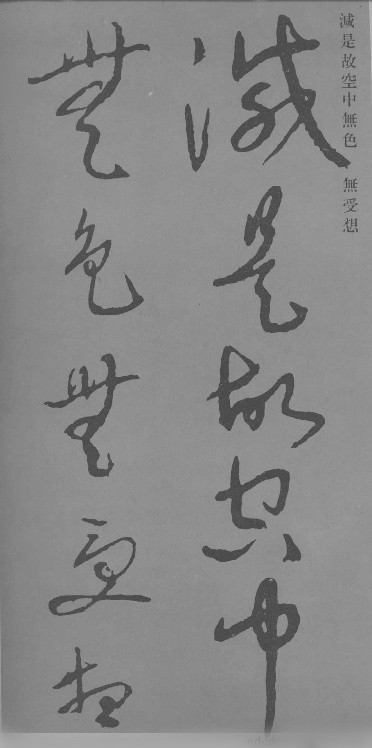 減是故空中無色　無受想
減是故空中
無色無受想